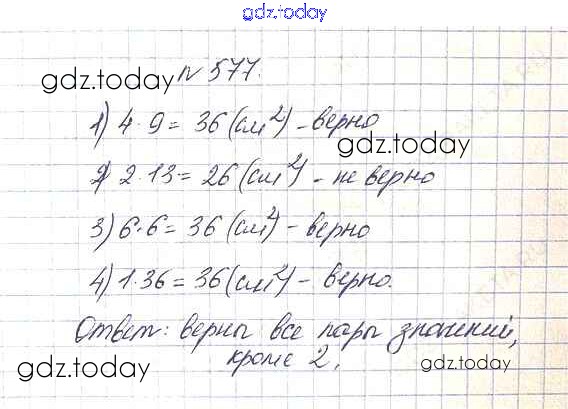 gdz.today
gdz.today № 577.
1) 4·9 = 36 (см²) - верно
gdz.today
2) 2·13 = 26 (см²) - не верно
3) 6·6 = 36 (см²) - верно
4) 1·36 = 36 (см²) - верно.
Ответ: верны все пары значений,
кроме 2.
gdz.today gdz.today